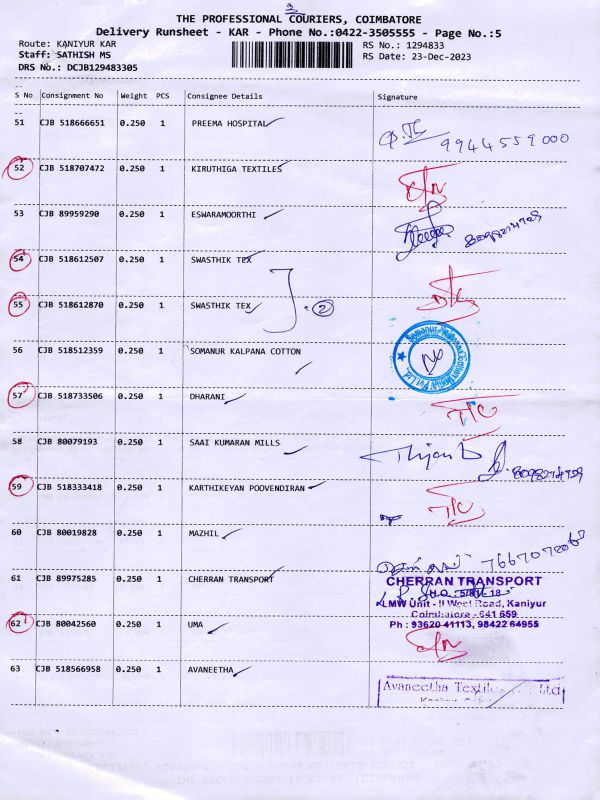 3
THE PROFESSIONAL COURIERS, COIMBATORE
Delivery Runsheet - KAR - Phone No.:0422-3505555 - Page No.:5
Route: KANIYUR KAR
RS No.: 1294833
Staff: SATHISH MS
RS Date: 23-Dec-2023
DRS No.: DCJB129483305
S No Consignment No Weight PCS Consignee Details Signature
51 CJB 518666651 0.250 1 PREEMA HOSPITAL
9944559000
52 CJB 518707472 0.250 1 KIRUTHIGA TEXTILES
53 CJB 89959290 0.250 1 ESWARAMOORTHI
54 CJB 518612507 0.250 1 SWASTHIK TEX
55 CJB 518612870 0.250 1 SWASTHIK TEX
2
56 CJB 518512359 0.250 1 SOMANUR KALPANA COTTON
57 CJB 518733506 0.250 1 DHARANI
58 CJB 80079193 0.250 1 SAAI KUMARAN MILLS
59 CJB 518333418 0.250 1 KARTHIKEYAN POOVENDIRAN
60 CJB 80019828 0.250 1 MAZHIL
61 CJB 89975285 0.250 1 CHERRAN TRANSPORT
CHERRAN TRANSPORT
LMW Unit - II West Road, Kaniyur
Coimbatore - 641 659
Ph : 93620 41113, 98422 64955
62 CJB 80042560 0.250 1 UMA
63 CJB 518566958 0.250 1 AVANEETHA
Avaneetha Textiles Ltd